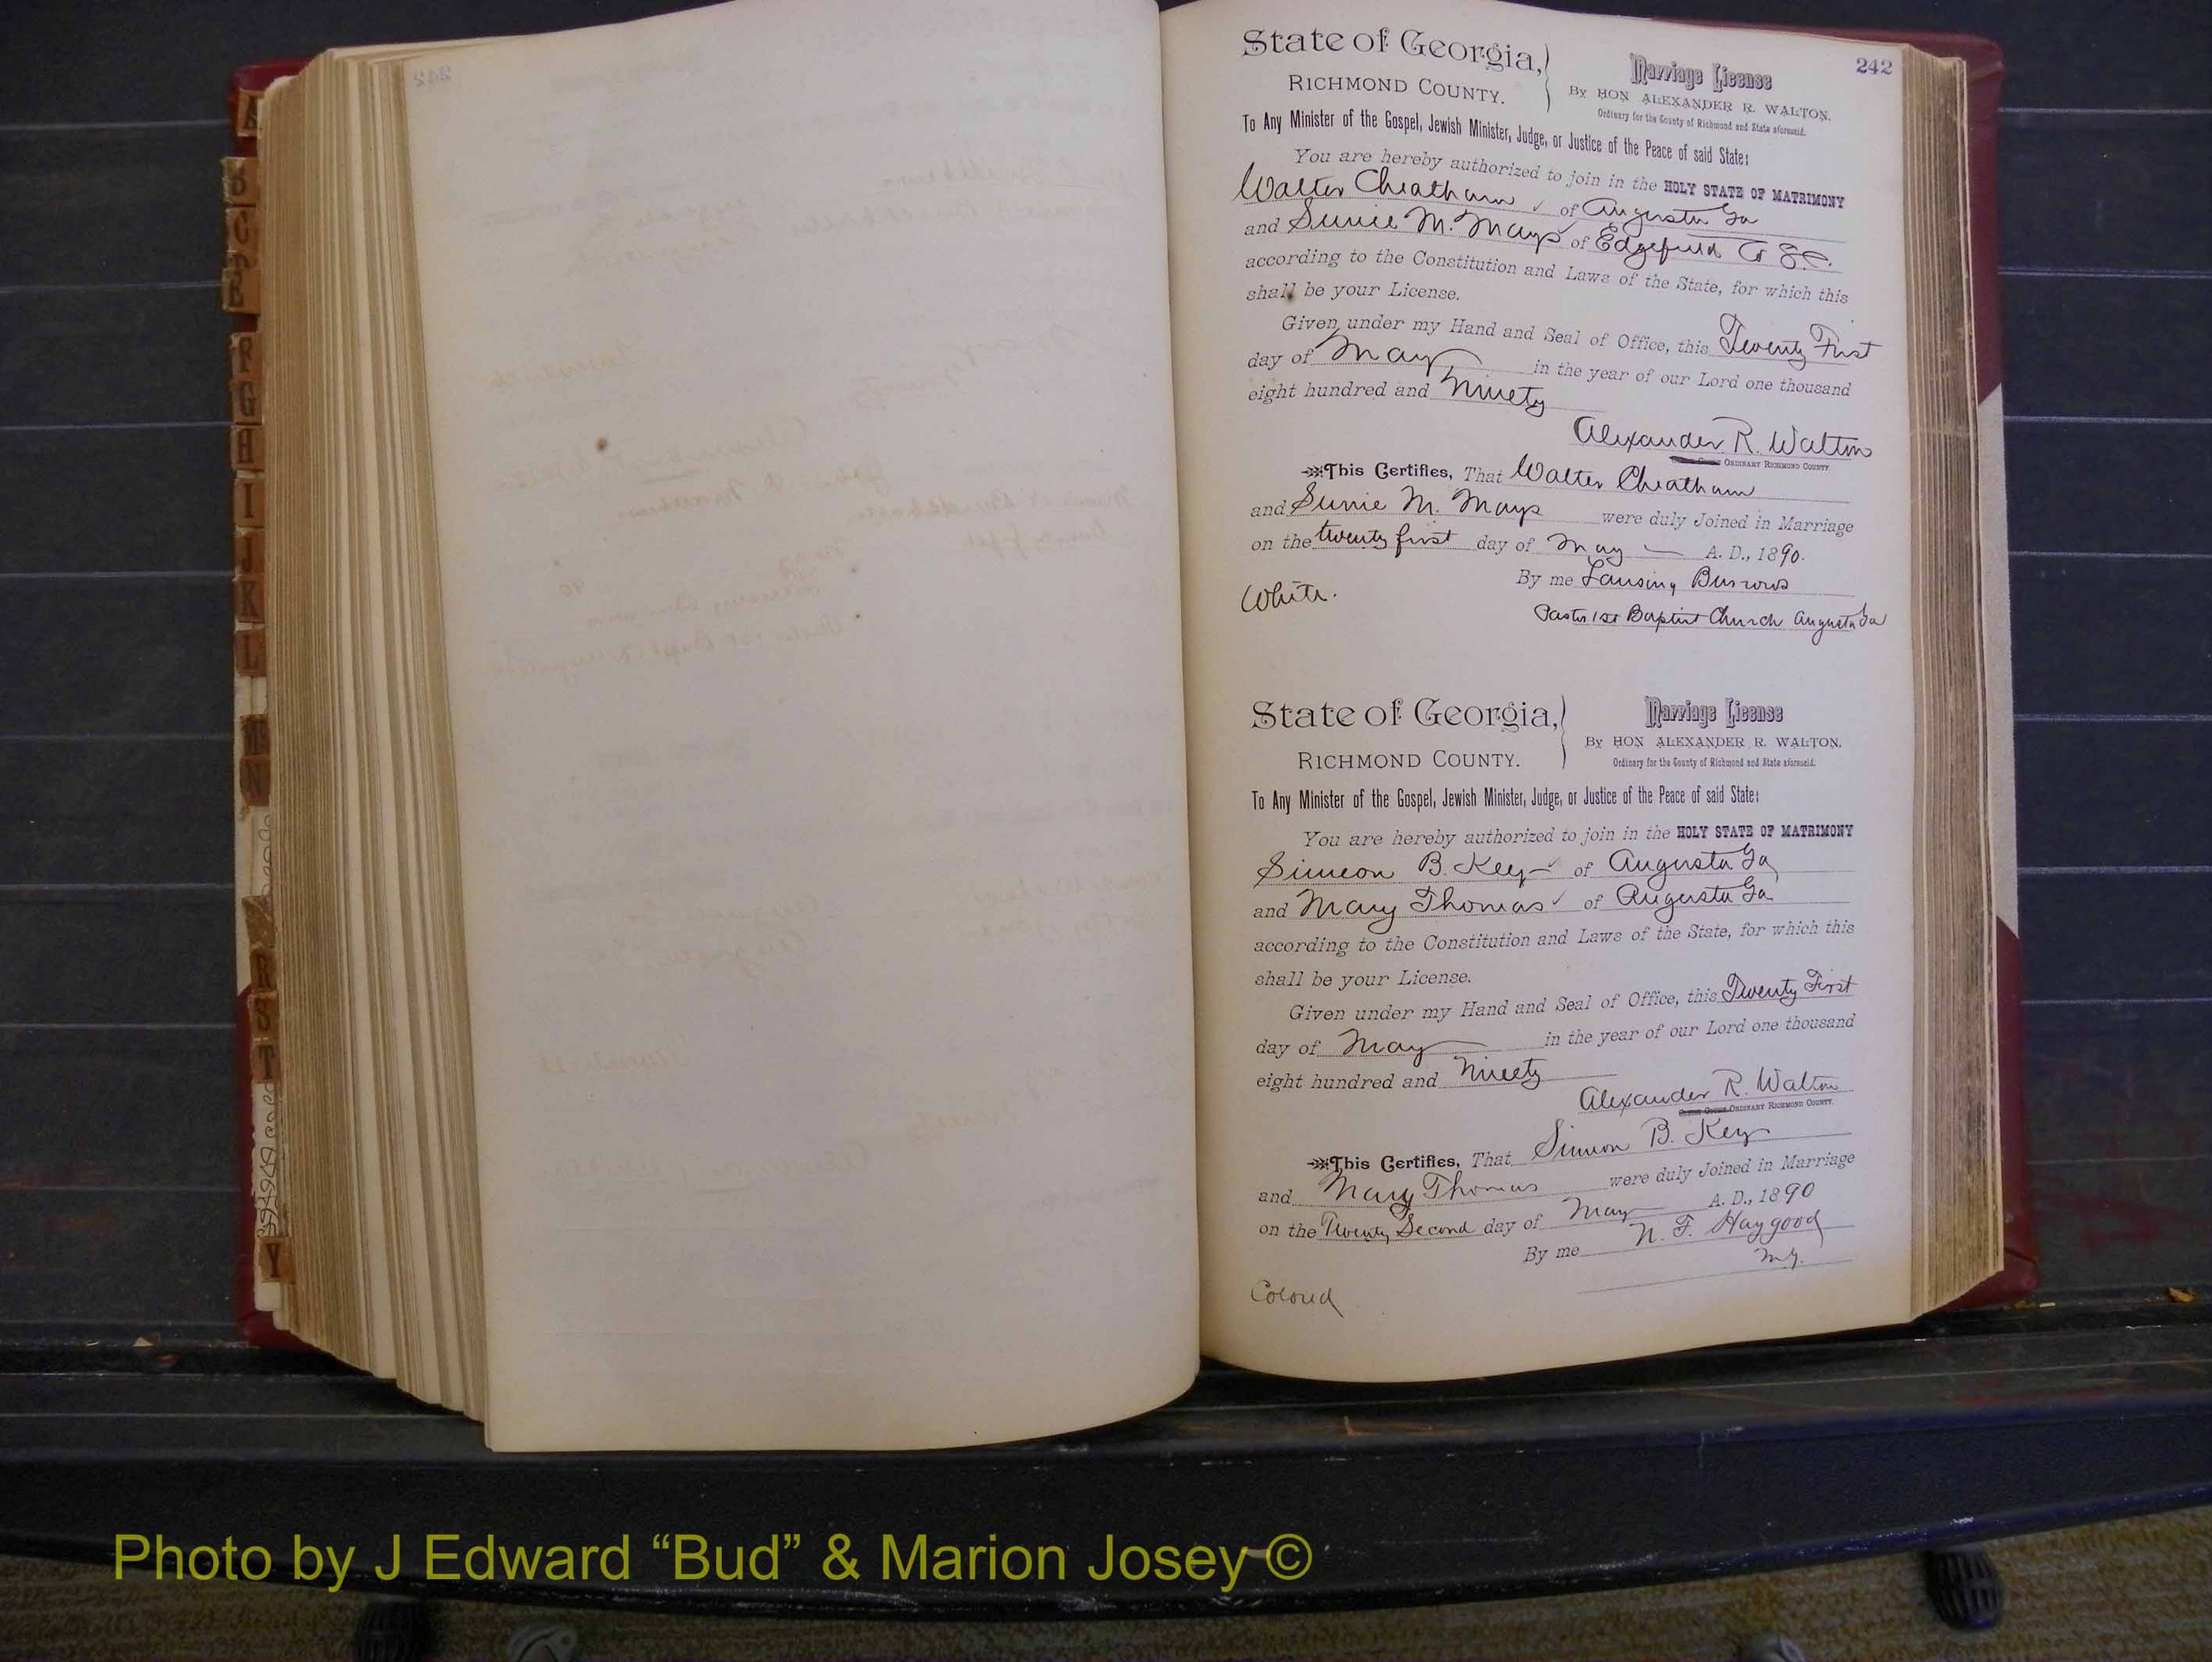 242
State of Georgia,
RICHMOND COUNTY.
Marriage License
By HON ALEXANDER R. WALTON,
Ordinary for the County of Richmond and State aforesaid.
To Any Minister of the Gospel, Jewish Minister, Judge, or Justice of the Peace of said State:
You are hereby authorized to join in the HOLY STATE OF MATRIMONY
Walter Cheatham of Augusta Ga
and Sunie M. Mays of Edgefield Co S.C.
according to the Constitution and Laws of the State, for which this
shall be your License.
Given under my Hand and Seal of Office, this Twenty First
day of May in the year of our Lord one thousand
eight hundred and Ninety
Alexander R. Walton
ORDINARY RICHMOND COUNTY.
This Certifies, That Walter Cheatham
and Sunie M. Mays were duly Joined in Marriage
on the twenty first day of May A. D., 1890.
By me Lansing Burrows
White.
Pastor 1st Baptist Church Augusta Ga
State of Georgia,
RICHMOND COUNTY.
Marriage License
By HON ALEXANDER R. WALTON,
Ordinary for the County of Richmond and State aforesaid.
To Any Minister of the Gospel, Jewish Minister, Judge, or Justice of the Peace of said State:
You are hereby authorized to join in the HOLY STATE OF MATRIMONY
Simeon B. Key of Augusta Ga
and Mary Thomas of Augusta Ga
according to the Constitution and Laws of the State, for which this
shall be your License.
Given under my Hand and Seal of Office, this Twenty First
day of May in the year of our Lord one thousand
eight hundred and Ninety
Alexander R. Walton
ORDINARY RICHMOND COUNTY.
This Certifies, That Simeon B. Key
and Mary Thomas were duly Joined in Marriage
on the Twenty Second day of May A. D., 1890
By me N. F. Haygood
M.G.
Colored
Photo by J Edward “Bud” & Marion Josey ©